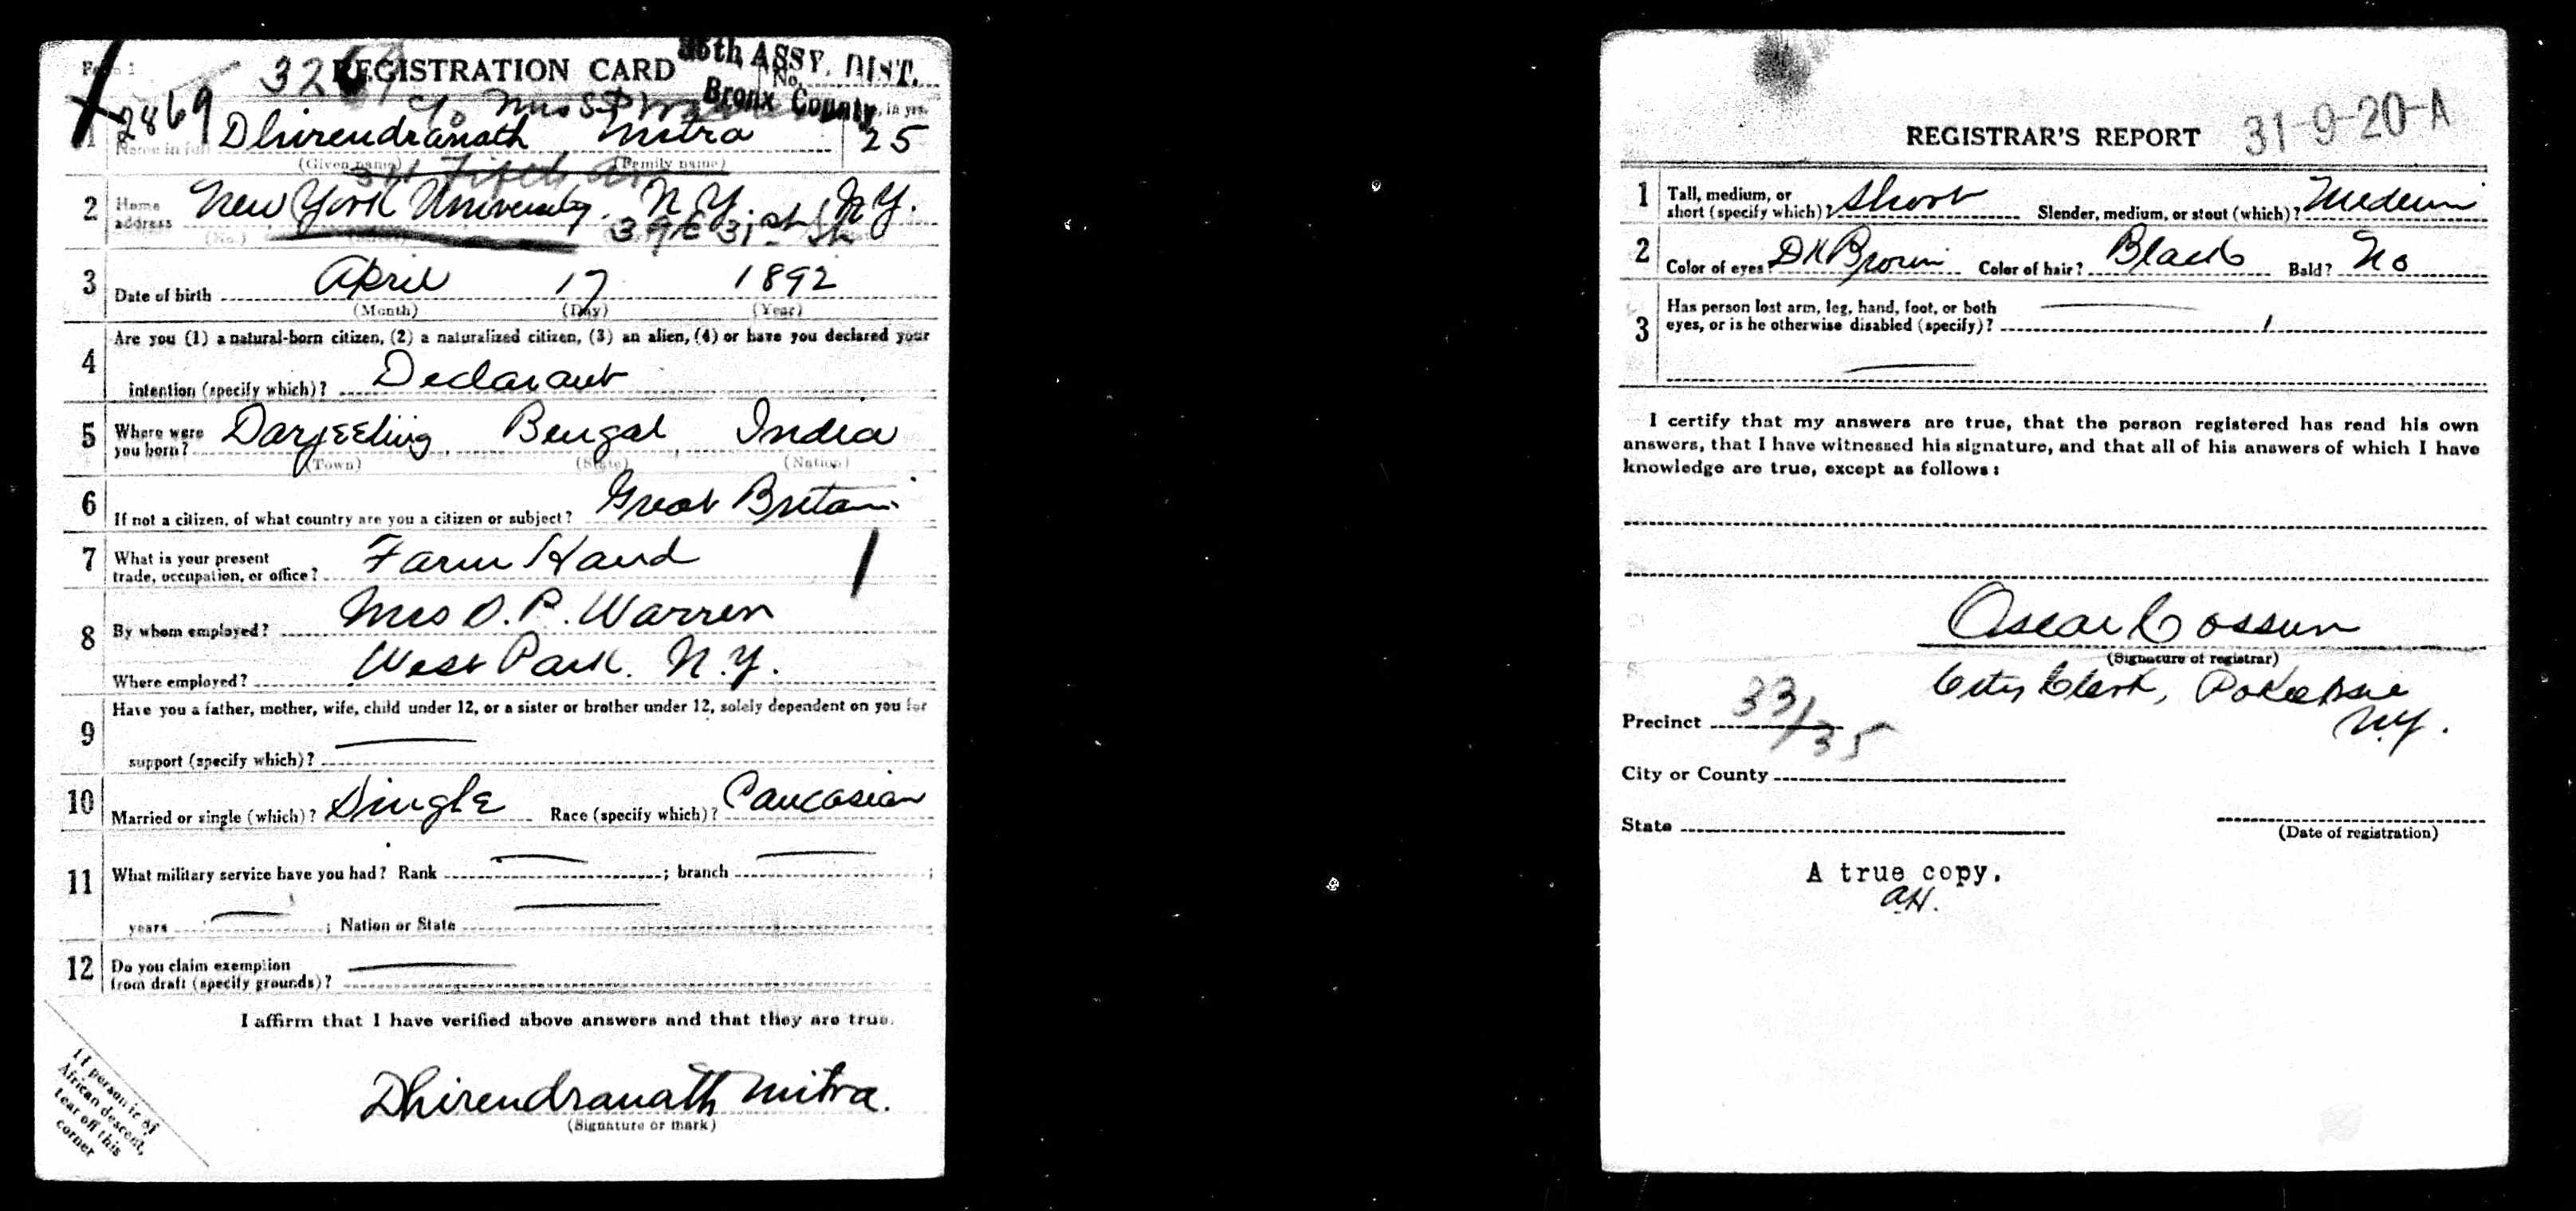 Form 1
REGISTRATION CARD
35th ASSY. DIST.
No.
Bronx County
2869
c/o Mrs S.P.
1 Name in full Dhirendranath Mitra 25
in yrs.
(Given name) (Family name)
Fifth Av
2 Home address New York University. N.Y. N.Y.
(No.) (Street)
39 E 31 st St
3 Date of birth April 17 1892
(Month) (Day) (Year)
4 Are you (1) a natural-born citizen, (2) a naturalized citizen, (3) an alien, (4) or have you declared your
intention (specify which)? Declarant
5 Where were you born? Darjeeling, Bengal, India
(Town) (State) (Nation)
6 If not a citizen, of what country are you a citizen or subject? Great Britain
7 What is your present
trade, occupation, or office? Farm Hand
8 By whom employed? Mrs D. P. Warren
Where employed? West Park. N.Y.
9 Have you a father, mother, wife, child under 12, or a sister or brother under 12, solely dependent on you for
support (specify which)?
10 Married or single (which)? Single Race (specify which)? Caucasian
11 What military service have you had? Rank ; branch ;
years ; Nation or State
12 Do you claim exemption
from draft (specify grounds)?
I affirm that I have verified above answers and that they are true.
Dhirendranath Mitra.
(Signature or mark)
If person is of
African descent,
tear off this
corner
REGISTRAR'S REPORT 31-9-20-A
1 Tall, medium, or
short (specify which)? Short Slender, medium, or stout (which)? Medium
2 Color of eyes? Dk Brown Color of hair? Black Bald? No
3 Has person lost arm, leg, hand, foot, or both
eyes, or is he otherwise disabled (specify)?
I certify that my answers are true, that the person registered has read his own
answers, that I have witnessed his signature, and that all of his answers of which I have
knowledge are true, except as follows:
Oscar Cossum
(Signature of registrar)
City Clerk, Pokeepsie
N.Y.
Precinct 33/35
City or County
State
(Date of registration)
A true copy.
A.H.